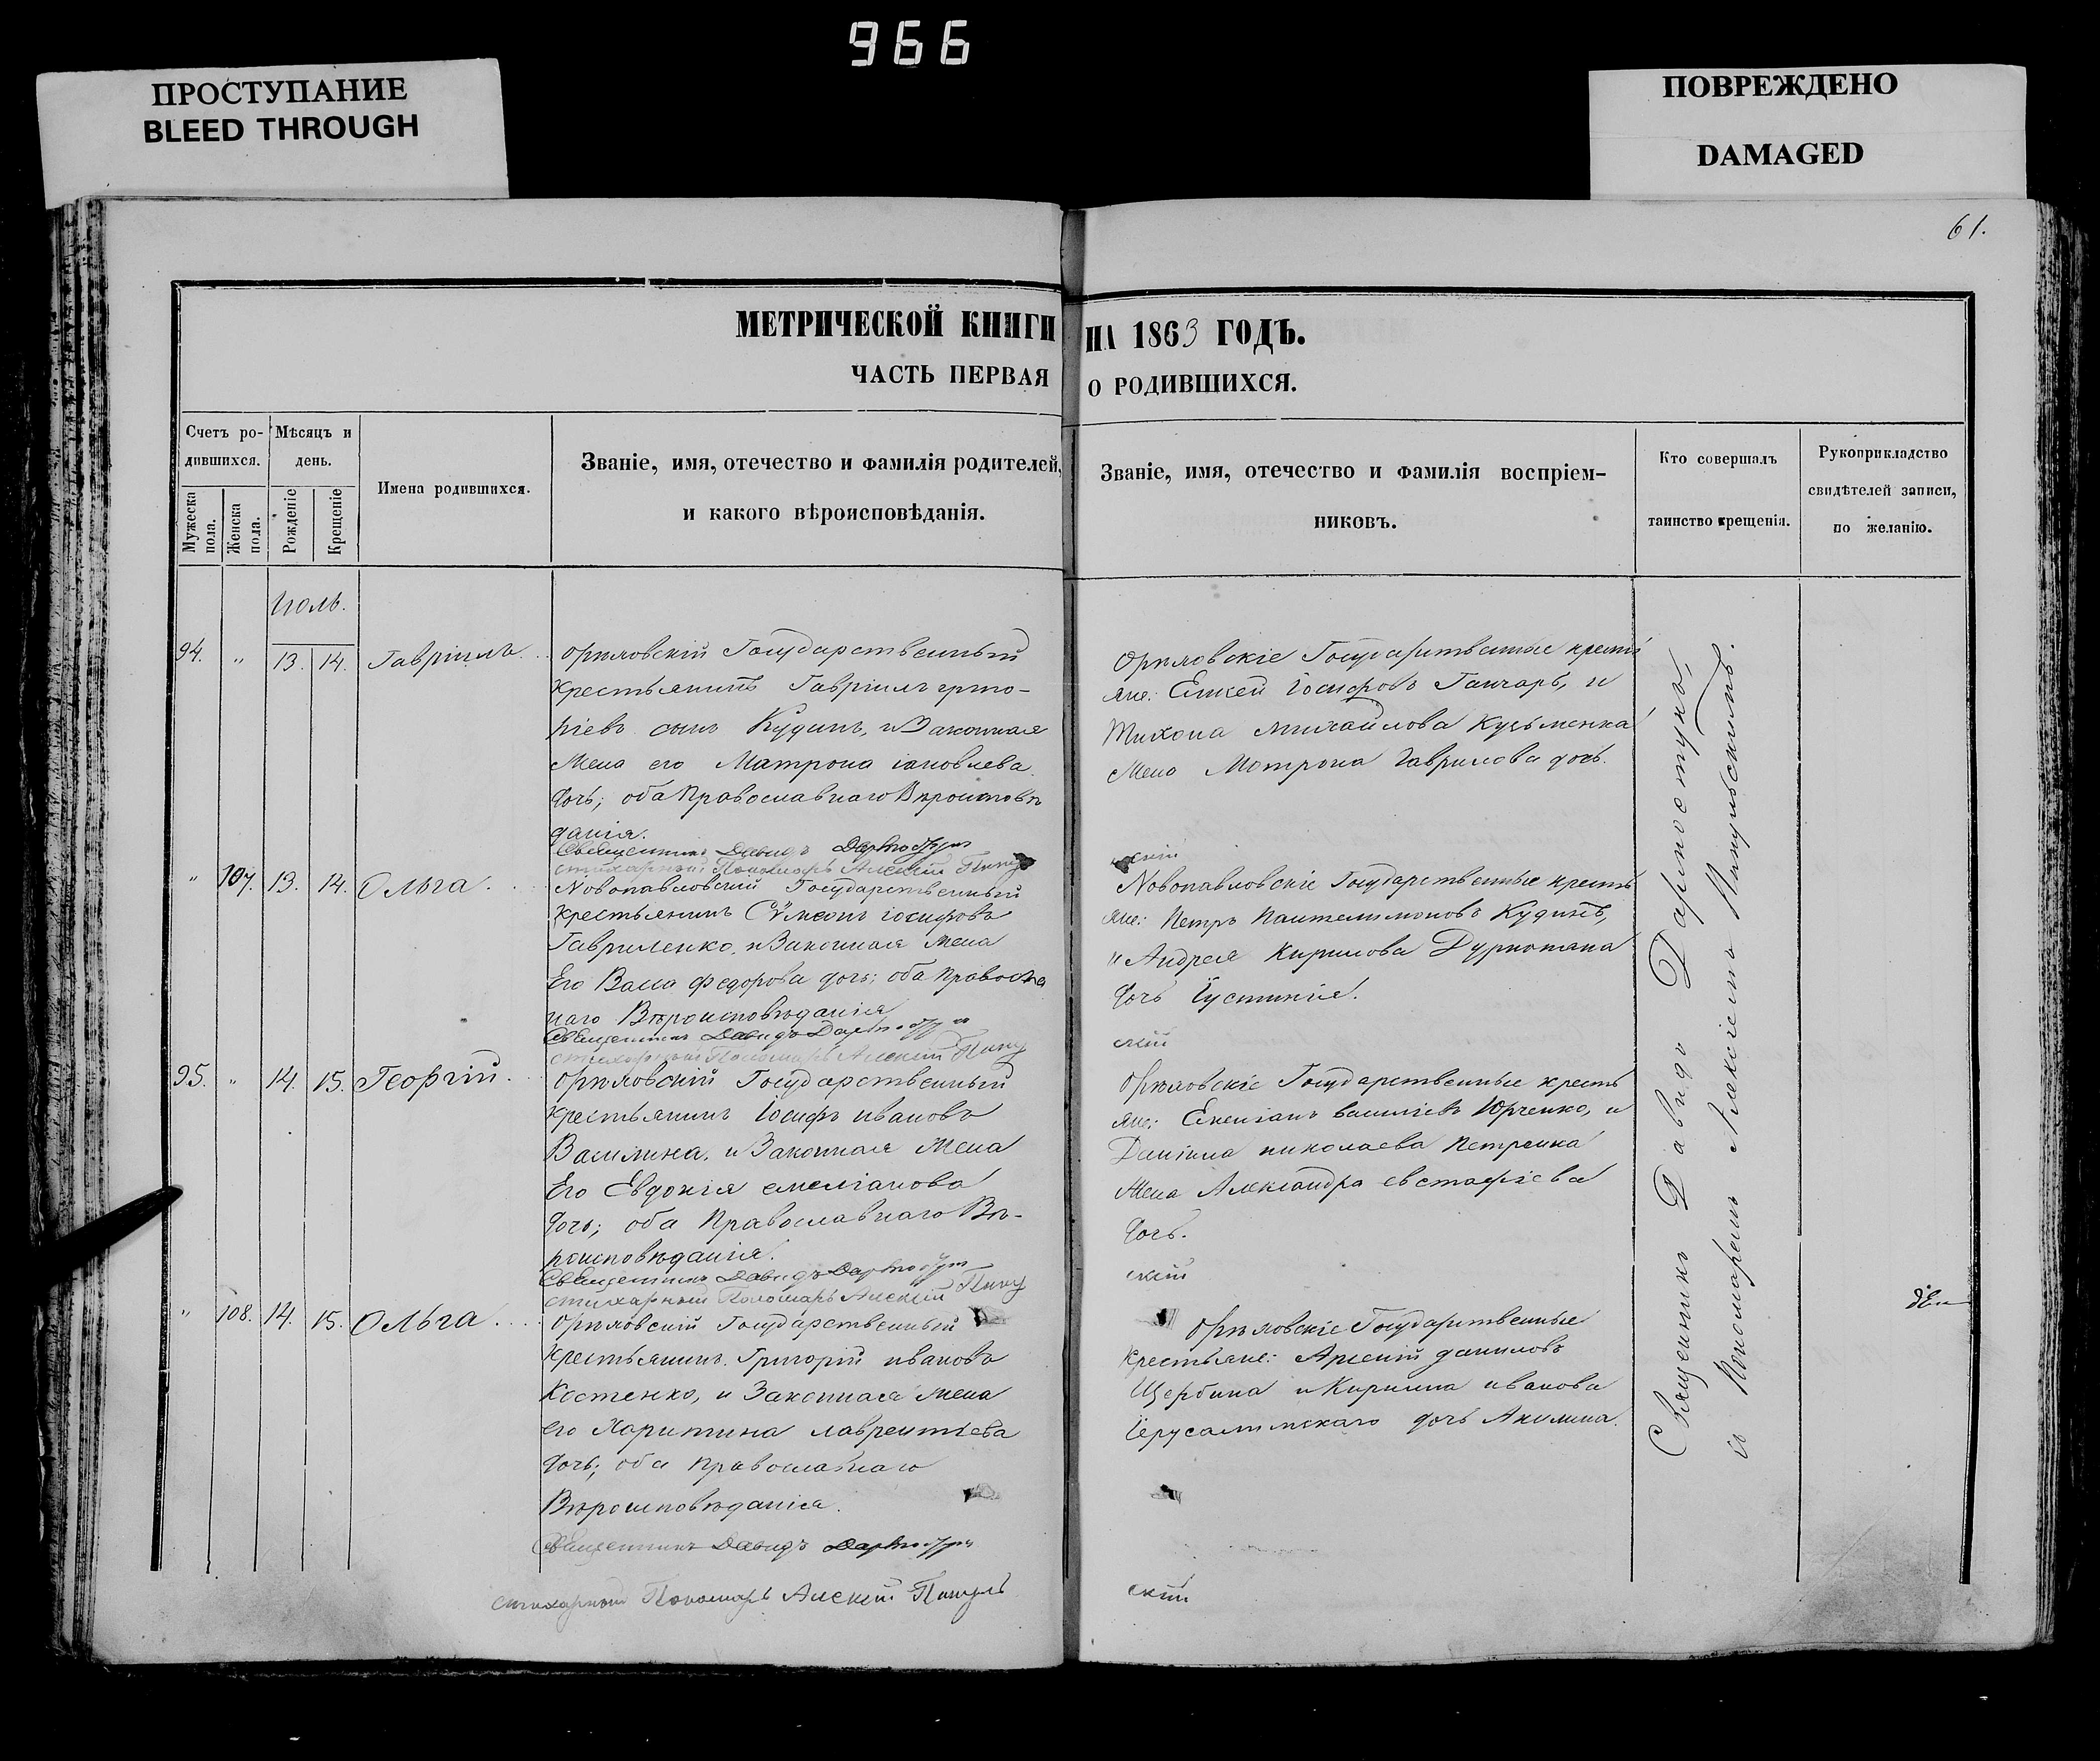 966
ПРОСТУПАНИЕ
BLEED THROUGH
ПОВРЕЖДЕНО
DAMAGED
61.
МЕТРИЧЕСКОЙ КНИГИ НА 1863 ГОДЪ.
ЧАСТЬ ПЕРВАЯ О РОДИВШИХСЯ.
Счетъ ро-
дившихся.
Мужеска пола.
Женска пола.
Мѣсяцъ и
день.
Рожденіе
Крещеніе
Имена родившихся.
Званіе, имя, отечество и фамилія родителей,
и какого вѣроисповѣданія.
Званіе, имя, отечество и фамилія воспріем-
никовъ.
Кто совершалъ
таинство крещенія.
Рукоприкладство
свидѣтелей записи,
по желанію.
Июль.
94. " 13. 14. Гавріилъ
Орѣловскій Государственный
крестьянинъ Гавріилъ
ріевъ сынъ Кудинъ, и Законная
Жена его Матрона іаковлева
дочь; оба Православнаго Вѣроисповѣ
данія.
Священникъ Давидъ
стихарный Пономарь Алексій
Орѣловскіе Государственные кресть
яне: Іосифовъ Ганчаръ, и
Тихона михайлова Кузьменка
Жена Матрона Гаврилова дочь.
скій
" 107. 13. 14. Ольга
Новопавловскій Государственный
крестьянинъ Сѵмеонъ іосифовъ
Гавриленко, и Законная Жена
Его Васса федорова дочь; оба Правосла
наго Вѣроисповѣданія
Священникъ Давидъ
стихарный Пономарь Алексій
Новопавловскіе Государственные кресть
яне: Петръ Пантелимоновъ Кудинъ,
и Андрея Кирилова
дочь Іустинія.
скій
95. " 14. 15. Георгій
Орѣловскій Государственный
крестьянинъ Іосифъ ивановъ
и Законная Жена
Его Евдокія емеліанова
дочь; оба Православнаго Вѣ-
роисповѣданія.
Священникъ Давидъ
стихарный Пономарь Алексій
Орѣловскіе Государственные кресть
яне: василіевъ Юрченко, и
Даніила николаева Петренка
Жена Александра евстафіева
дочь.
скій
" 108. 14. 15. Ольга
Орѣловскій Государственный
крестьянинъ Григорій ивановъ
Костенко, и Законная Жена
его Харитина лаврентіева
дочь; оба Православнаго
Вѣроисповѣданія.
Священникъ Давидъ
стихарный Пономарь Алексій
Орѣловскіе Государственные
крестьяне: Арсеній даниловъ
Щербина и Кирилла иванова
Іерусалимскаго дочь Акилина.
скій
Священникъ Давидъ
съ Пономаремъ Алексіемъ